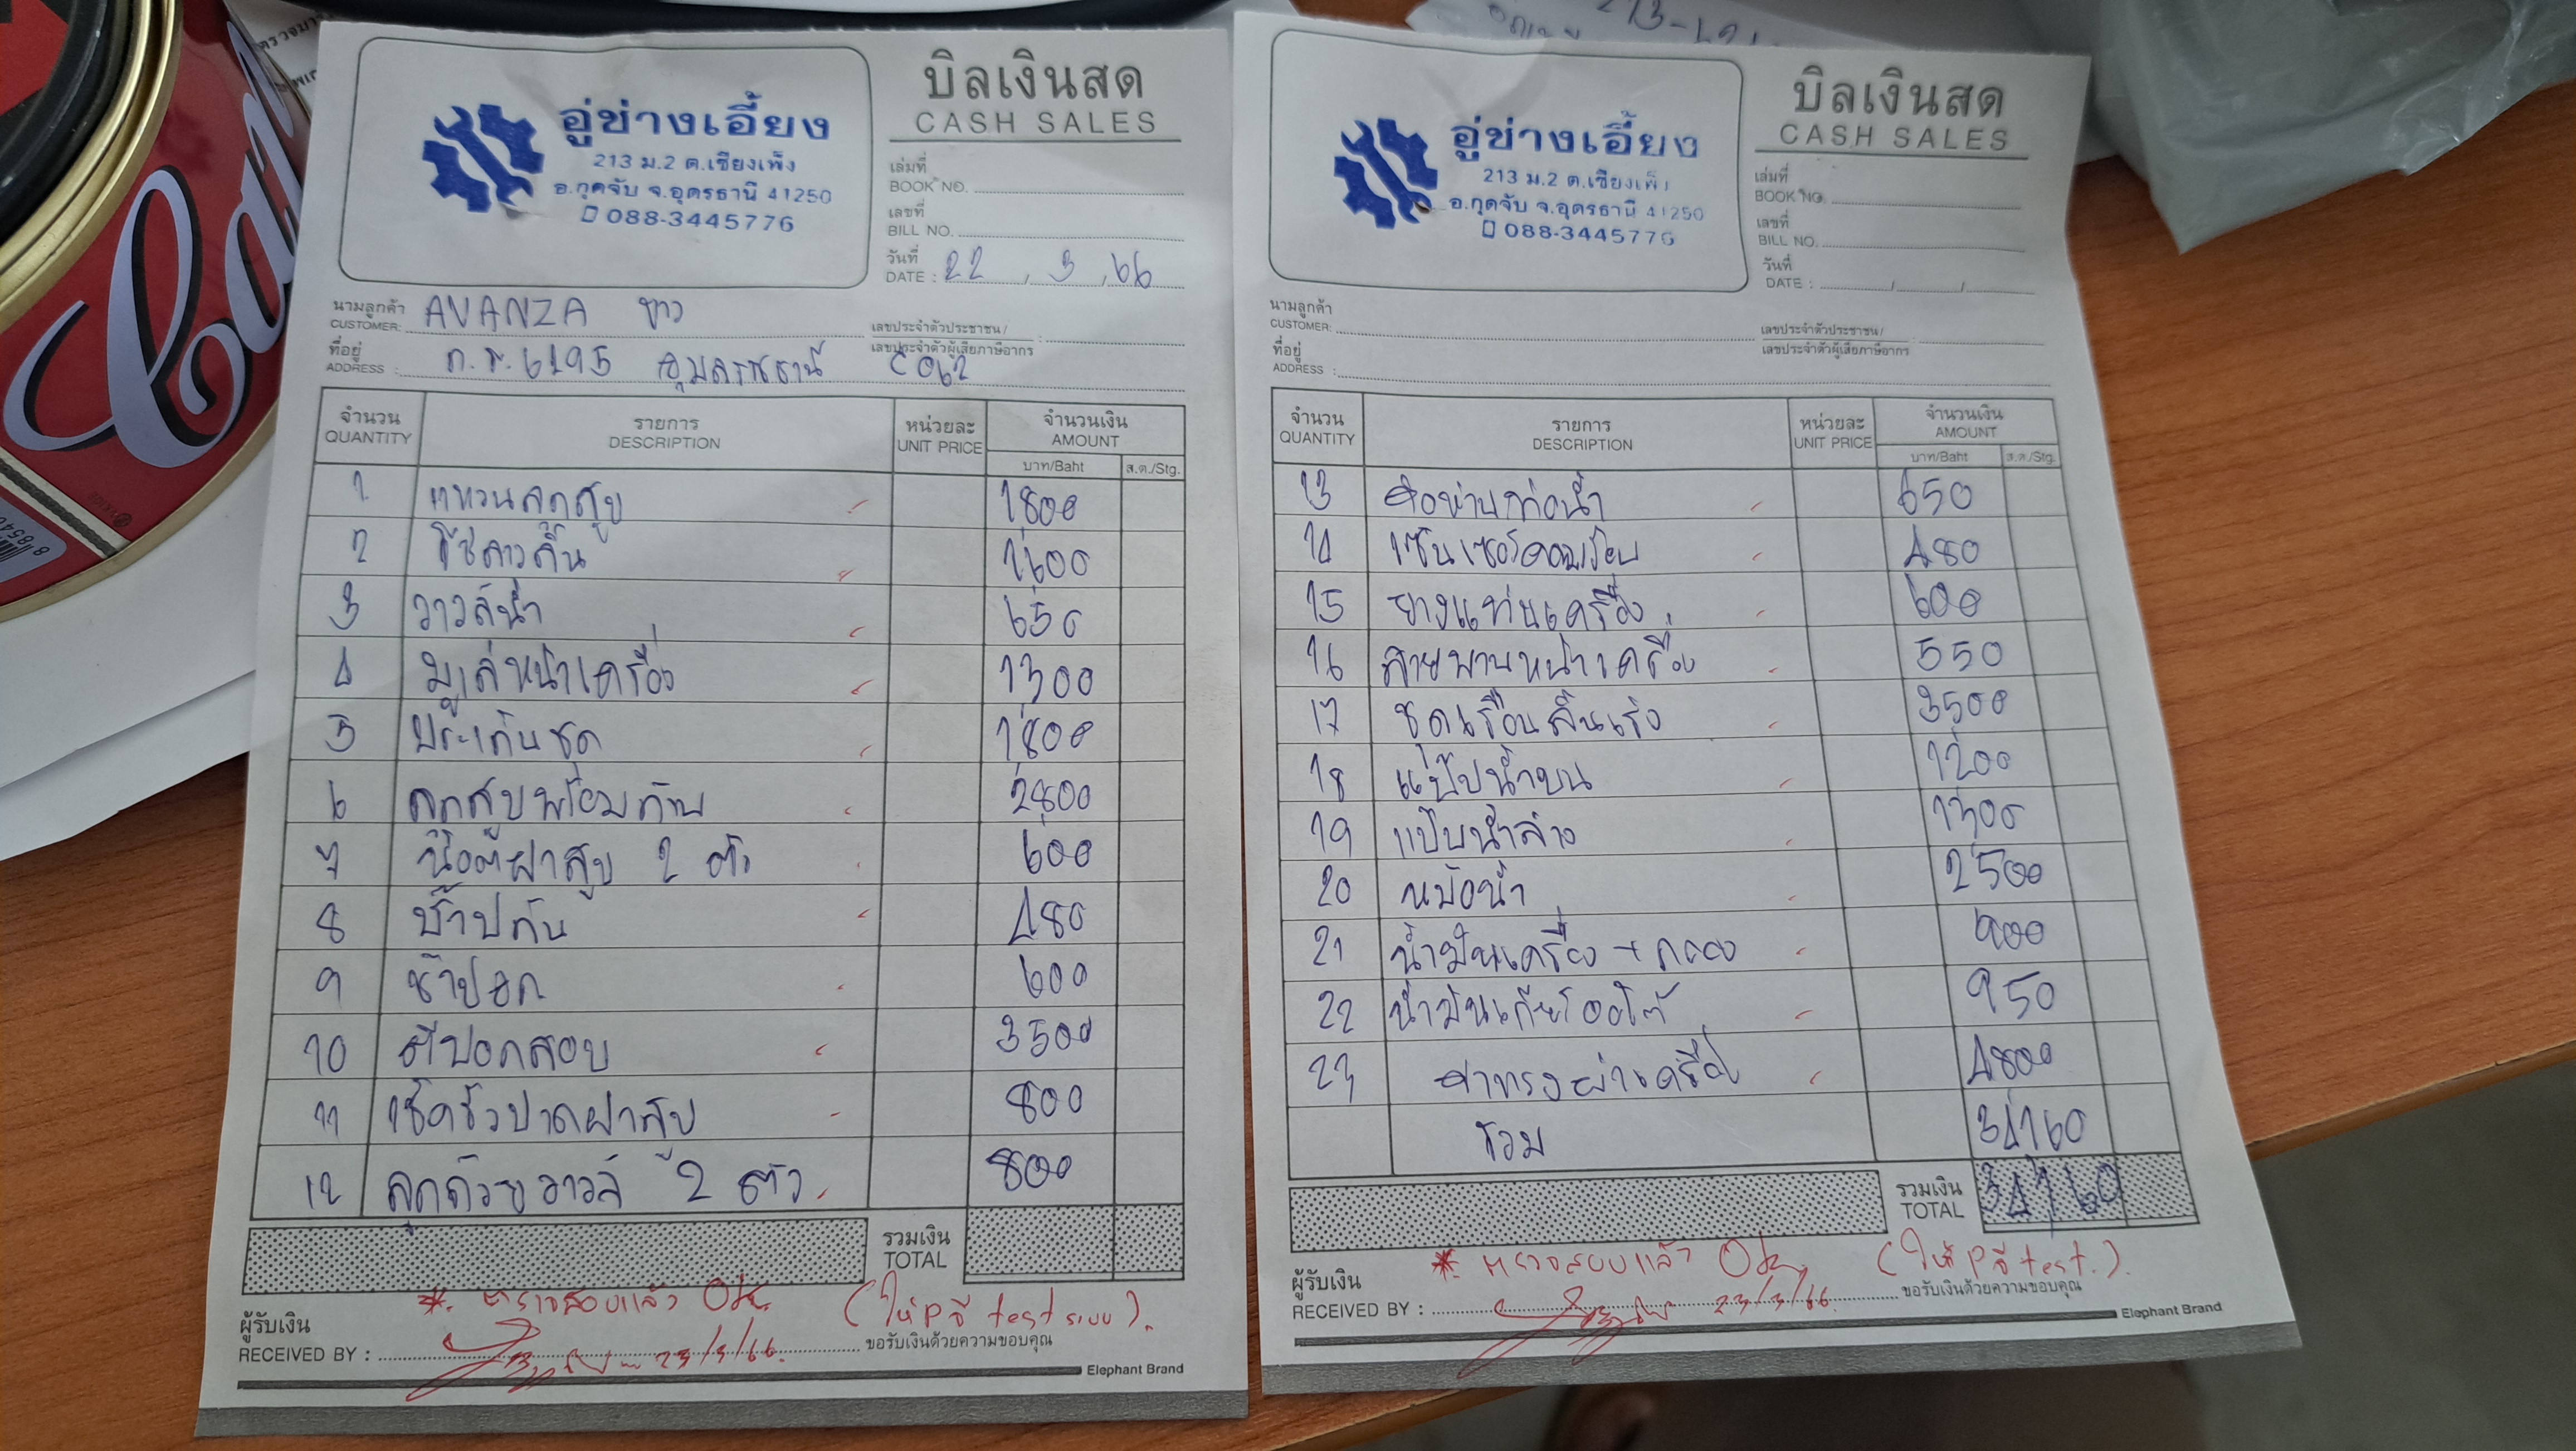 บิลเงินสด
CASH SALES
อู่ช่างเอี้ยง
213 ม.2 ต.เชียงเพ็ง
อ.กุดจับ จ.อุดรธานี 41250
088-3445776
เล่มที่
BOOK NO.
เลขที่
BILL NO.
วันที่
DATE : 22 , 3 , 66
นามลูกค้า
CUSTOMER: AVANZA ขาว
เลขประจำตัวประชาชน/
เลขประจำตัวผู้เสียภาษีอากร :
ที่อยู่
ADDRESS : 6195
จำนวน รายการ หน่วยละ จำนวนเงิน
QUANTITY DESCRIPTION UNIT PRICE AMOUNT
บาท/Baht ส.ต./Stg.
1 แหวนลูกสูบ 1800
2 1600
3 วาวล์น้ำ 650
4 มูเล่หน้าเครื่อง 1300
5 ประเก็นชุด 1800
6 ลูกสูบพร้อมก้าน 2800
7 น๊อตฝาสูบ 2 ตัว 600
8 ช๊าปก้น 480
9 ช๊าปอก 600
10 ตีปอกสูบ 3500
11 เช็ครั่วปาดฝาสูบ 800
12 ลูกถ้วยวาวล์ 2 ตัว 800
รวมเงิน
TOTAL
*. ตรวจสอบแล้ว Ok. (ให้ Pจี testระบบ).
ผู้รับเงิน
RECEIVED BY : 23/3/66.
ขอรับเงินด้วยความขอบคุณ
Elephant Brand
บิลเงินสด
CASH SALES
อู่ช่างเอี้ยง
213 ม.2 ต.เชียงเพ็ง
อ.กุดจับ จ.อุดรธานี 41250
088-3445776
เล่มที่
BOOK NO.
เลขที่
BILL NO.
วันที่
DATE : / /
นามลูกค้า
CUSTOMER:
เลขประจำตัวประชาชน/
เลขประจำตัวผู้เสียภาษีอากร :
ที่อยู่
ADDRESS :
จำนวน รายการ หน่วยละ จำนวนเงิน
QUANTITY DESCRIPTION UNIT PRICE AMOUNT
บาท/Baht ส.ต./Stg.
13 คอห่านท่อน้ำ 650
14 เซ็นเซอร์ความร้อน 480
15 ยางแท่นเครื่อง 600
16 สายพานหน้าเครื่อง 550
17 ชุดเรือนลิ้นเร่ง 3500
18 แป๊ปน้ำบน 1200
19 แป๊บน้ำล่าง 1300
20 หม้อน้ำ 2500
21 น้ำมันเครื่อง + กรอง 900
22 น้ำมันเกียร์ออโต้ 950
23 ค่าแรงผ่าเครื่อง 4800
รวม 34160
รวมเงิน
TOTAL 34160
*. ตรวจสอบแล้ว Ok. (ให้ Pจี test.).
ผู้รับเงิน
RECEIVED BY : 23/3/66.
ขอรับเงินด้วยความขอบคุณ
Elephant Brand